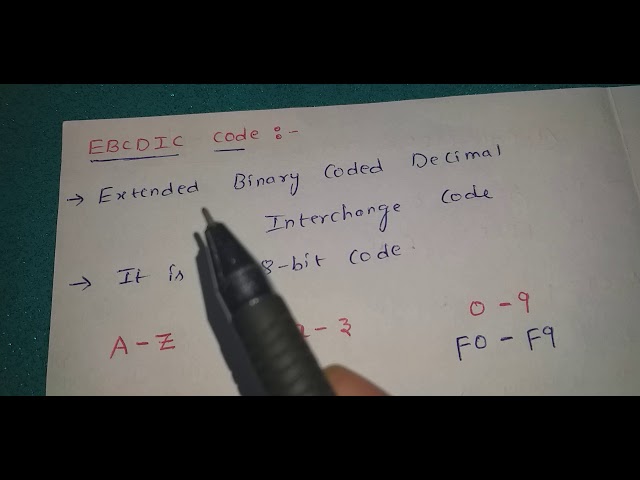 EBCDIC Code :-
→ Extended Binary Coded Decimal
Interchange Code
→ It is 8-bit code.
A - Z - z 0 - 9
F0 - F9